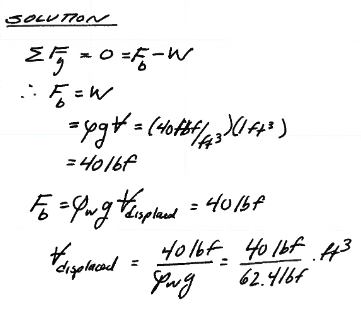 SOLUTION
ΣFy = 0 = Fb - W
∴ Fb = W
= ρgV = (40 lbf/ft³)(1 ft³)
= 40 lbf
Fb = ρw g Vdisplaced = 40 lbf
Vdisplaced = 40 lbf / ρw g = 40 lbf / 62.4 lbf · ft³